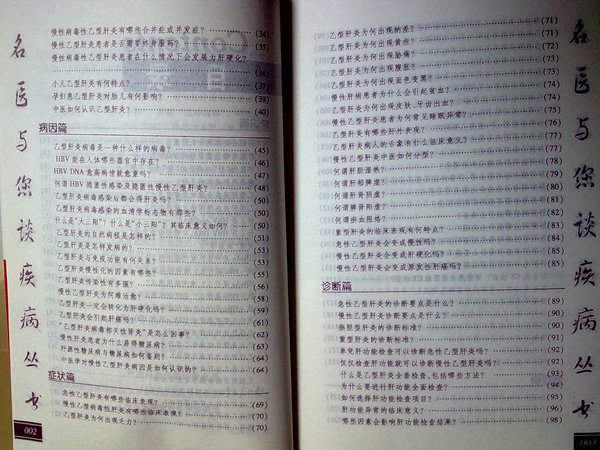 名医与您谈疾病丛书
慢性病毒性肝炎有哪些合并症或并发症? (34)
慢性乙型肝炎患者是否需要终身服药? (35)
慢性病毒性乙型肝炎患者在什么情况下会发展为肝硬化?
(36)
小儿乙型肝炎有何特点? (37)
孕妇患乙型肝炎对胎儿有何影响? (39)
中医如何认识乙型肝炎? (40)
病因篇
乙型肝炎病毒是一种什么样的病毒? (45)
HBV 能在人体哪些器官中存在? (46)
HBV DNA 愈高病情就愈重吗? (47)
何谓 HBV 隐匿性感染及隐匿性慢性乙型肝炎? (48)
乙型肝炎病毒感染后都会得肝炎吗? (50)
乙型肝炎病毒感染的血清学标志物有那些? (50)
什么是“大三阳”？什么是“小三阳”？其临床意义如何? (50)
乙型肝炎的自然病程是怎样的? (51)
乙型肝炎是怎样发病的? (53)
乙型肝炎与免疫功能有何关系? (55)
乙型肝炎慢性化的因素有哪些? (55)
乙型肝炎传染性有多强? (56)
慢性乙型肝炎为何难治愈? (58)
乙型肝炎一定会转化为肝硬化吗? (59)
乙型肝炎会引起肝癌吗? (61)
“乙型肝炎病毒相关性肾炎”是怎么回事? (62)
慢性肝炎患者为什么易得糖尿病? (64)
肝源性糖尿病与糖尿病如何鉴别? (64)
中医学对慢性乙型肝炎病因是如何认识的?
症状篇
急性乙型肝炎有哪些临床表现? (69)
慢性乙型病毒性肝炎有哪些临床表现? (70)
乙型肝炎为何出现乏力? (70)
002
乙型肝炎为何出现纳差? (71)
乙型肝炎为何出现黄疸? (71)
乙型肝炎为何出现胁痛? (72)
乙型肝炎为何出现腹胀? (73)
乙型肝炎为何出现面色变黑? (73)
慢性肝病患者为什么会引起贫血? (74)
乙型肝炎为何出现皮肤、牙齿出血? (74)
慢性乙型肝炎患者为何常见睡眠异常? (75)
乙型肝炎有哪些肝外表现? (76)
乙型肝炎病人的舌象有什么临床意义? (77)
慢性乙型肝炎中医如何分型? (77)
何谓肝胆湿热? (78)
何谓肝郁脾虚? (80)
何谓肝肾阴虚? (81)
何谓脾肾阳虚? (81)
何谓瘀血阻络? (82)
重型肝炎的临床表现有何特点? (83)
急性乙型肝炎会变成慢性吗? (84)
慢性乙型肝炎会变成肝硬化吗? (85)
慢性乙型肝炎会变成原发性肝癌吗? (85)
诊断篇
急性乙型肝炎的诊断要点是什么? (89)
慢性乙型肝炎诊断要点是什么? (90)
瘀胆型肝炎的诊断标准? (90)
重型肝炎的诊断标准? (91)
单凭肝功能检查可以诊断急性乙型肝炎吗? (92)
仅仅检查肝功能就可以诊断慢性乙型肝炎吗? (92)
什么是乙型肝炎全套检查,包括哪些方法? (93)
为什么要进行肝功能全面检查? (94)
如何选择肝功能检查项目? (94)
肝功能异常的临床意义? (95)
哪些因素会影响肝功能检查结果? (98)
003
名医与您谈疾病丛书